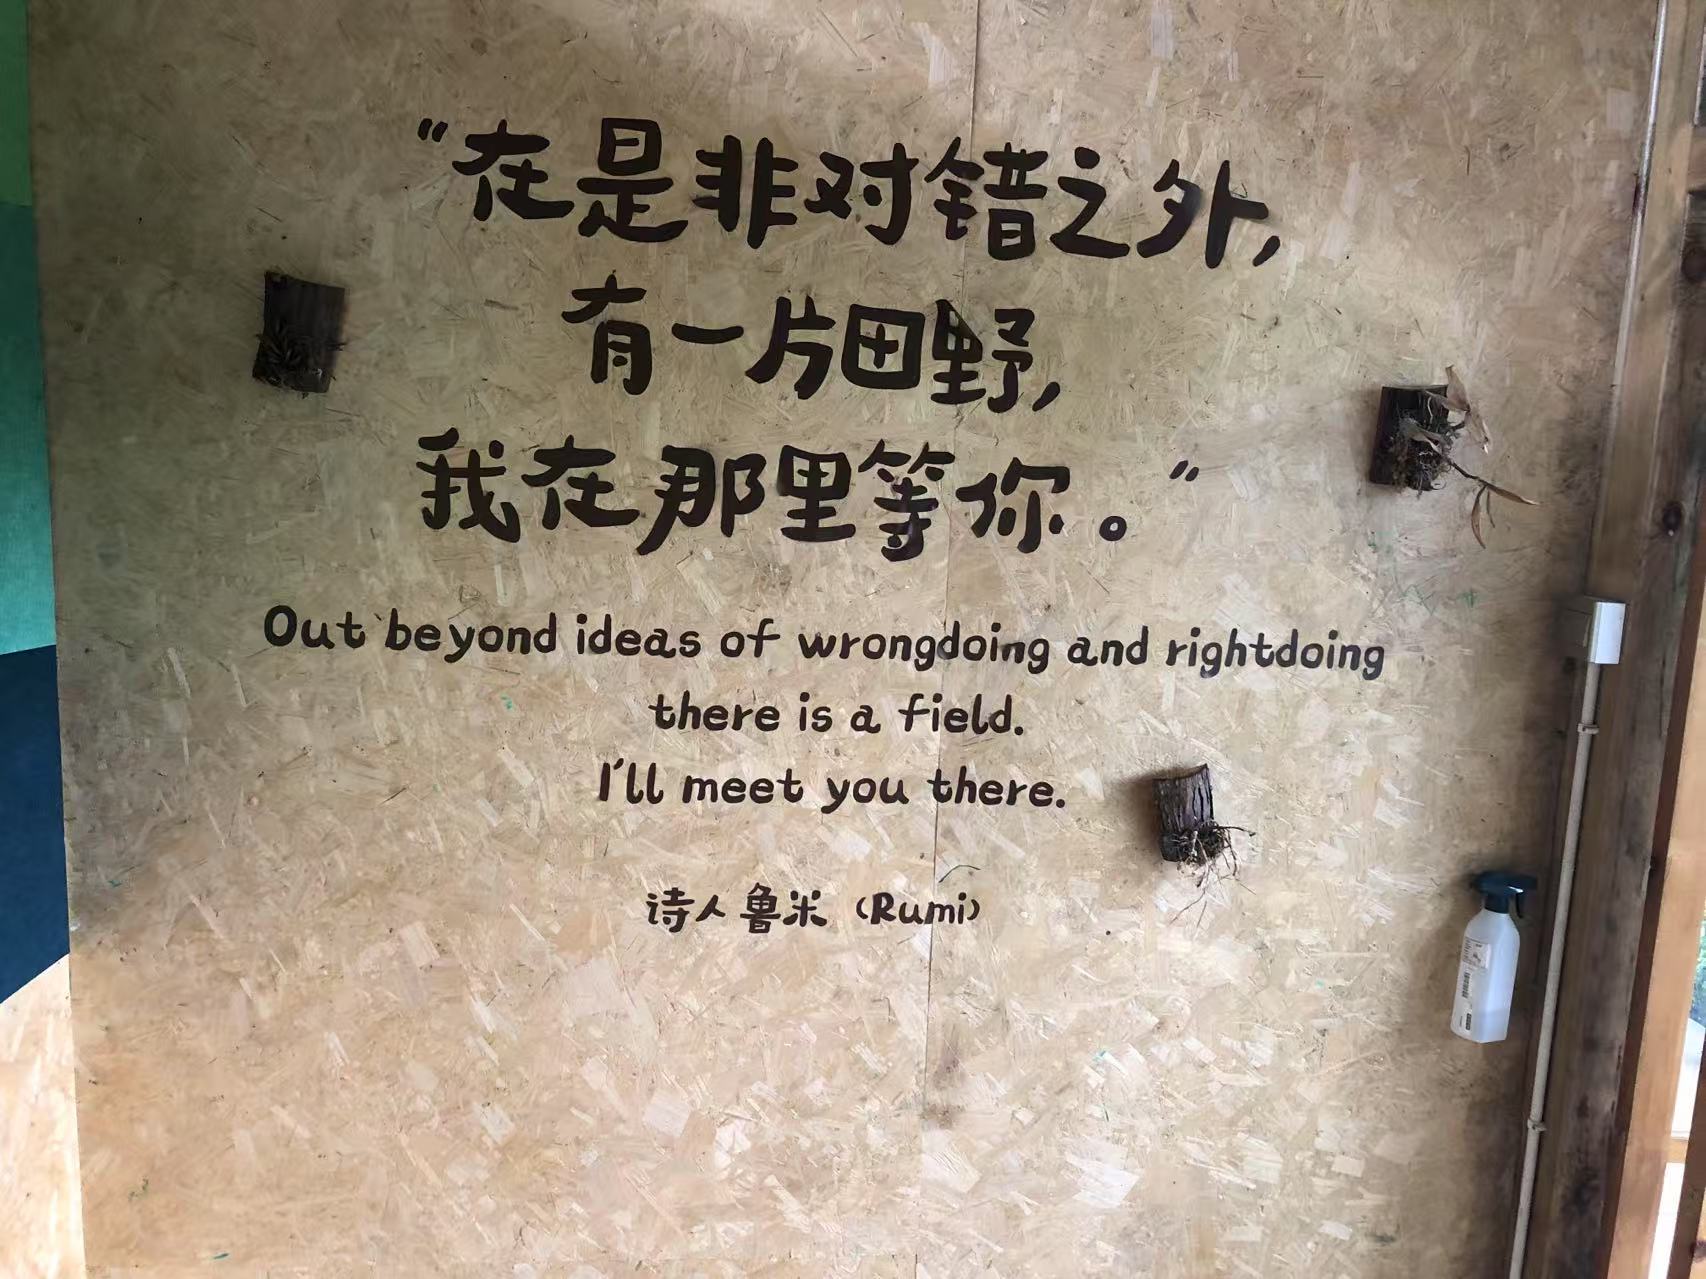 “在是非对错之外,
有一片田野,
我在那里等你。”
Out beyond ideas of wrongdoing and rightdoing
there is a field.
I'll meet you there.
诗人鲁米（Rumi）